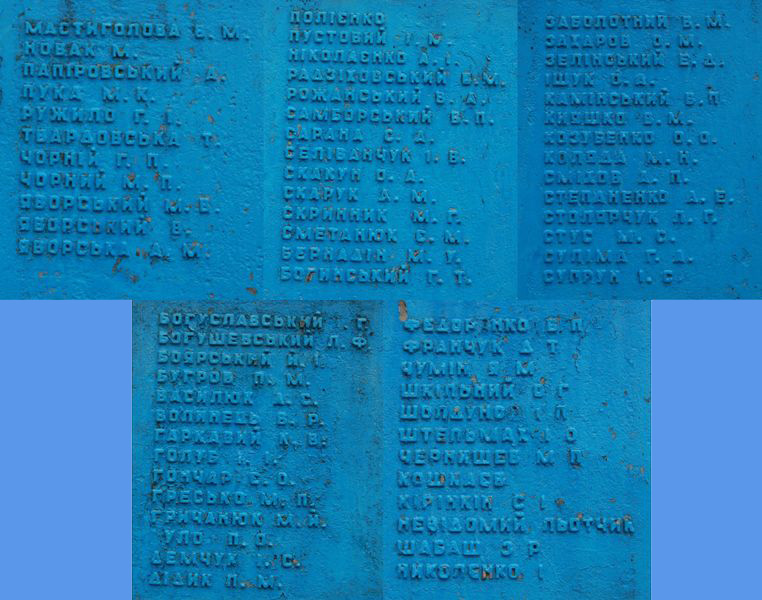 МАСТИГОЛОВА Є. М.
НОВАК М.
ПАПІРОВСЬКИЙ Д.
ПУКА М. К.
РУЖИЛО Г. І.
ТВАРДОВСЬКА Т.
ЧОРНІЙ Г. П
ЧОРНИЙ М. П.
ЯВОРСЬКИЙ М. В.
ЯВОРСЬКИЙ В.
ЯВОРСЬКА А. М.
ПОЛІЄНКО
ПУСТОВИЙ І. М.
НІКОЛАЕНКО А. І.
РАДЗІХОВСЬКИЙ В. М.
РОЖАНСЬКИЙ В. А.
САМБОРСЬКИЙ В. П.
САРАНА С. Д.
СЕЛІВАНЧУК І. В.
СКАКУН О. Д.
СКАРУК А. М.
СКРИННИК М. Г.
СМЕТАНЮК Є. М.
БЕРНАДІН М. У.
БОГИНСЬКИЙ Г. Т.
ЗАБОЛОТНИЙ В. М.
ЗАХАРОВ О. М.
ЗЕЛІНСЬКИЙ Б. Д.
ІЩУК О. А.
КАМІНСЬКИЙ В. П
КИЯШКО В. М.
КОЗУБЕНКО О. О.
КОЛЯДА М. Н.
СМІХОВ Д. П.
СТЕПАНЕНКО А. Е.
СТОЛЯРЧУК Л. Г
СТУС М. С.
СУЛІМА Г. Д.
СУПРУН І. С
БОГУСЛАВСЬКИЙ Г.
БОГУШЕВСЬКИЙ Л. Ф
БОЯРСЬКИЙ Й. І.
БУГРОВ П. М.
ВАСИЛЮК Д. С.
ВОЛИНЕЦЬ В. Р.
ГАРКАВИЙ К. В.
ГОЛУБ І. І.
ГОНЧАР Є. О.
ГРЕСЬКО М. П.
ГРИЧАНЮК М. Й.
УЛО П. О.
ДЕМЧУК І. С.
ДІДИК П. М.
ФЕДОРІНКО В. П.
ФРАНЧУК Д Т
ЧУМІН Я М
ШКІЛЬНИЙ В Г
ШОЛДУНОВ І Л
ШТЕЛЬМАХ І О
ЧЕРНИШЕВ М П
КОШКАЄВ
КІРІНКІН С І
НЕВІДОМИЙ ЛЬОТЧИК
ШАБАШ Э Р
НИКОЛЄНКО І